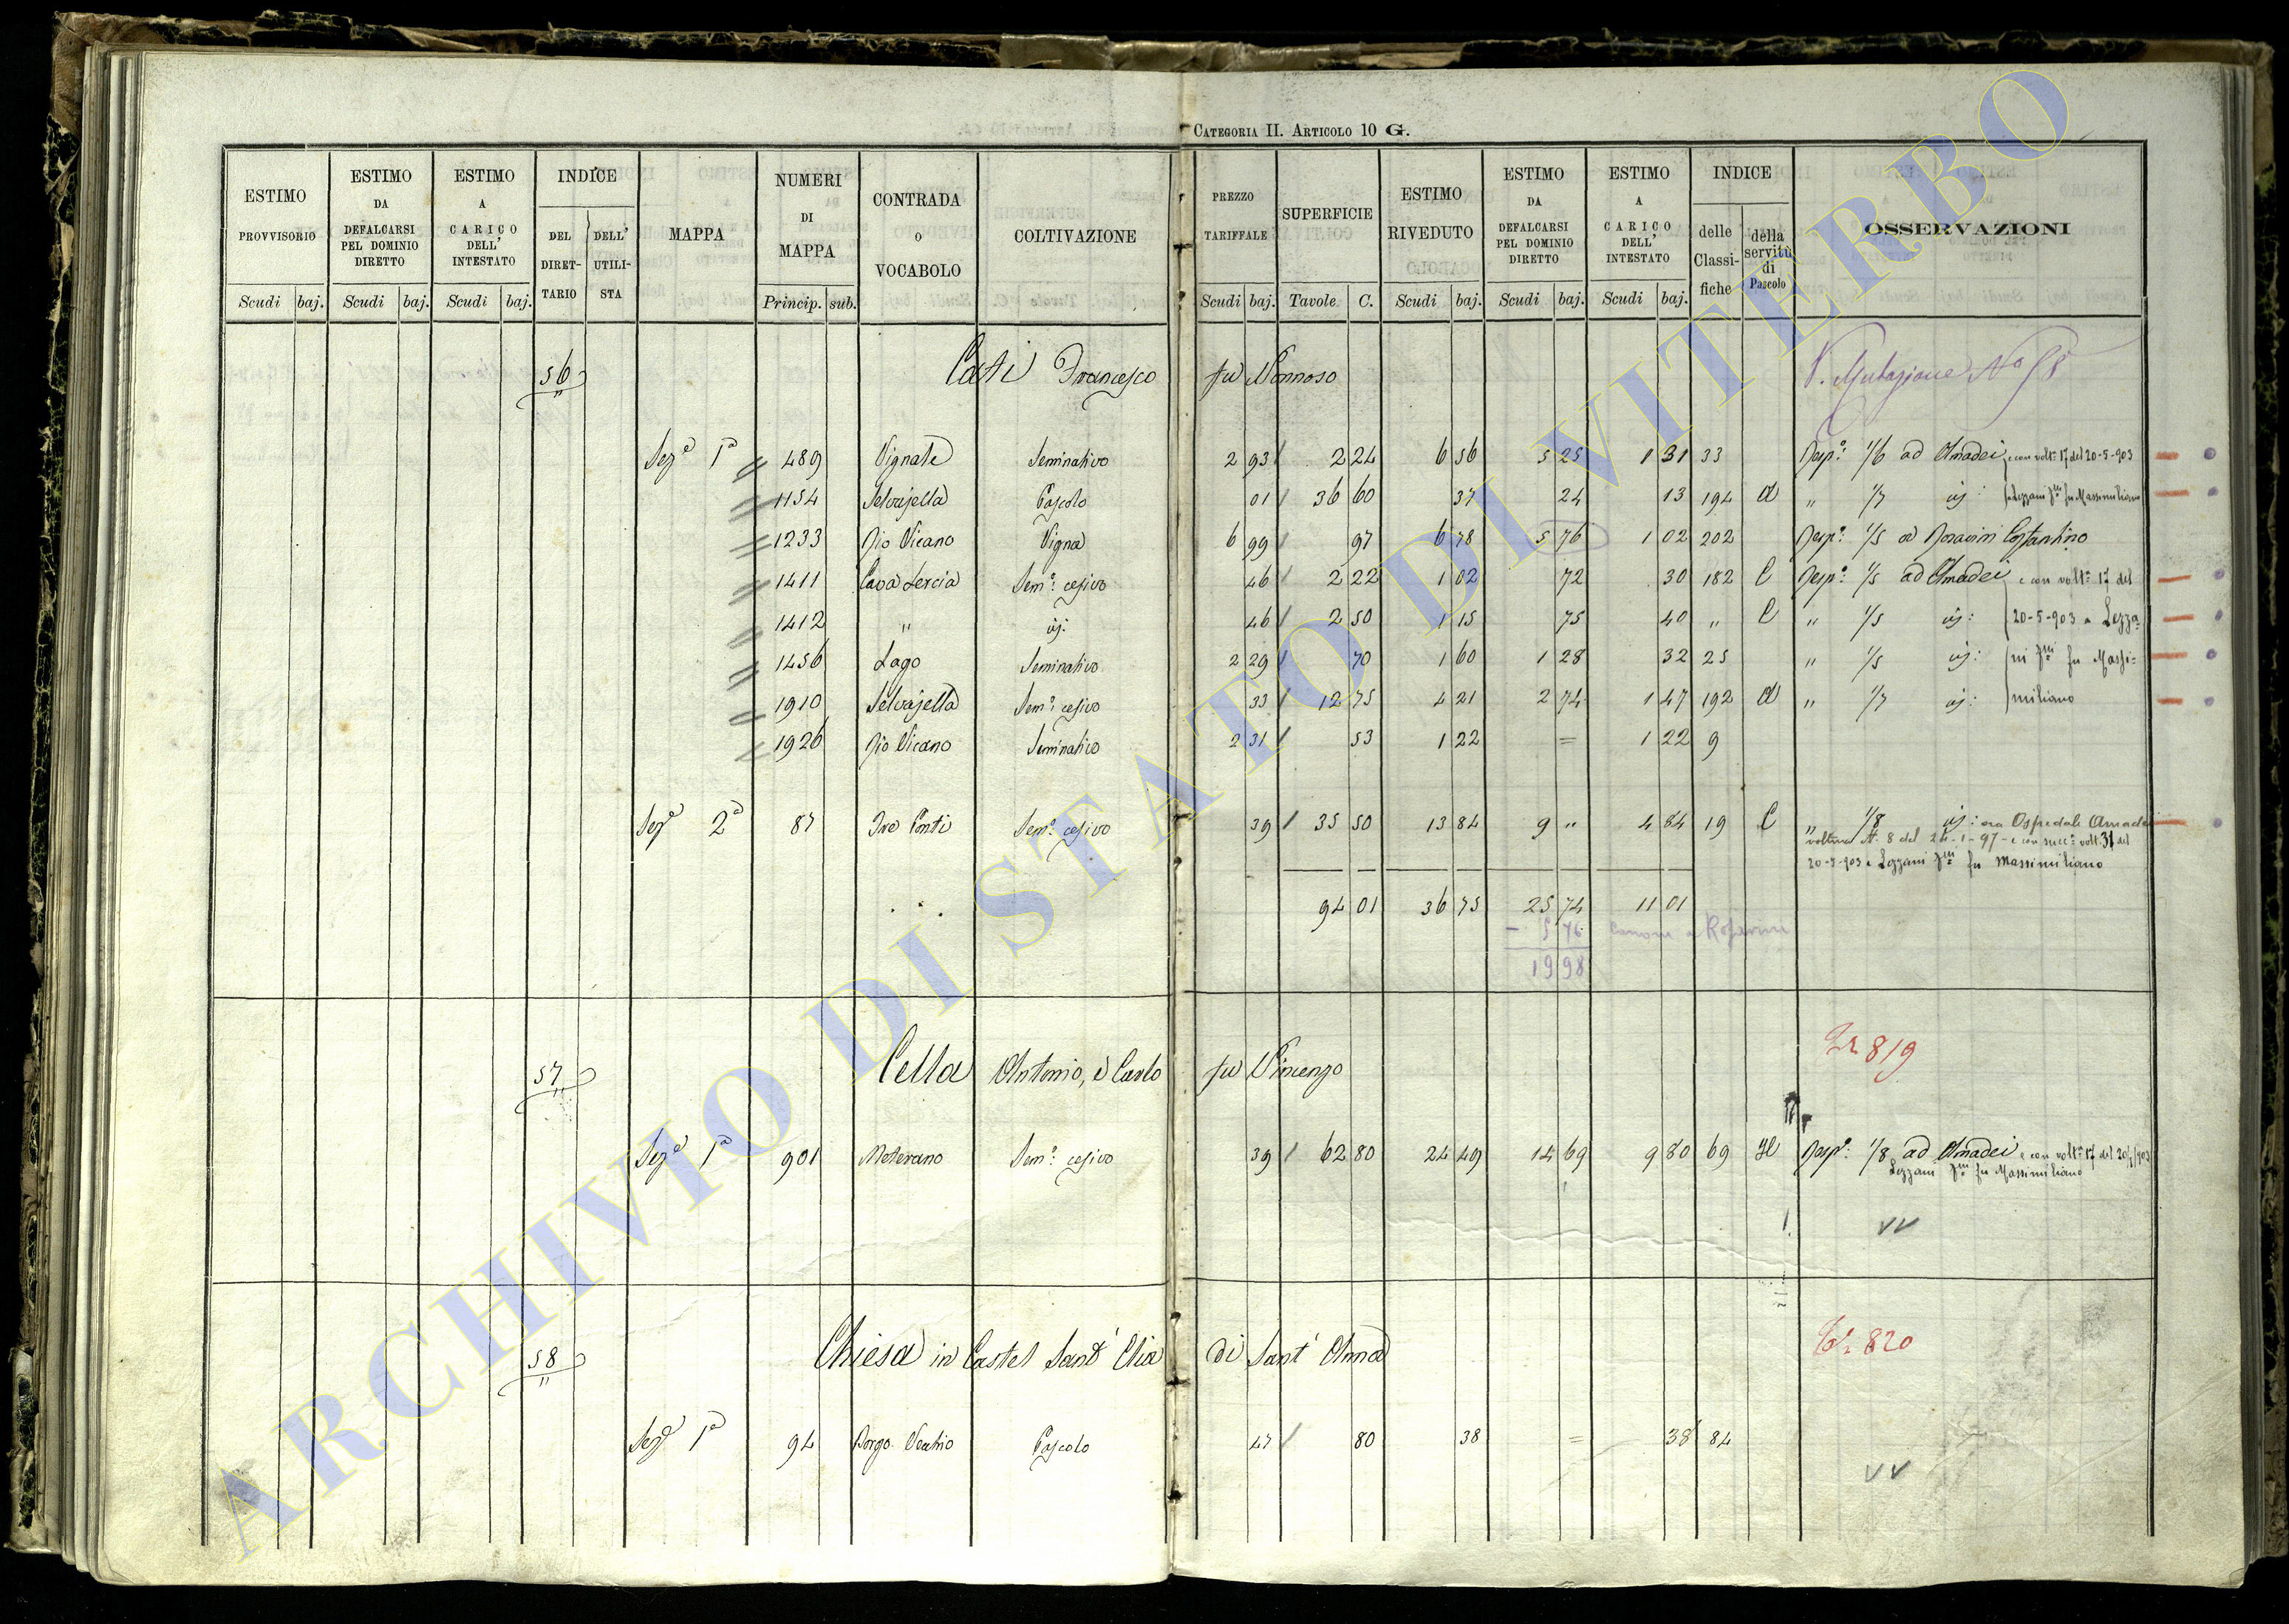 CATEGORIA II. ARTICOLO 10 G.
ESTIMO PROVVISORIO Scudi baj.
ESTIMO DA DEFALCARSI PEL DOMINIO DIRETTO Scudi baj.
ESTIMO A CARICO DELL' INTESTATO Scudi baj.
INDICE DEL DIRET-TARIO DELL' UTILI-STA
MAPPA
NUMERI DI MAPPA Princip. sub.
CONTRADA O VOCABOLO
COLTIVAZIONE
PREZZO TARIFFALE Scudi baj.
SUPERFICIE Tavole C.
ESTIMO RIVEDUTO Scudi baj.
ESTIMO DA DEFALCARSI PEL DOMINIO DIRETTO Scudi baj.
ESTIMO A CARICO DELL' INTESTATO Scudi baj.
INDICE delle Classi-fiche della servitù di Pascolo
OSSERVAZIONI
56 Casti Francesco fu Nonnoso V. Mutazione No 58
Sez.e 1a 489 Vignale Seminativo 2 93 2 24 6 56 5 25 1 31 33 Risp.e 1/6 ad Amadei e con volt.a 17 del 20-5-903
1154 Selvajella Pascolo 01 36 60 37 24 13 194 a " 1/7 id: a Lezzani fu Massimiliano
1233 Rio Vicano Vigna 6 99 97 6 78 5 76 1 02 202 Risp.e 1/5 a Costantino
1411 Cava Lercia Sem.o cesivo 46 2 22 1 02 72 30 182 C Risp.e 1/5 ad Amadei e con volt.a 17 del
1412 " id: 46 2 50 1 15 75 40 " C " 1/5 id: 20-5-903 a Lezza-
1456 Lago Seminativo 2 29 70 1 60 1 28 32 25 " 1/5 id: ni fu Massi-
1910 Selvajella Sem.o cesivo 33 12 75 4 21 2 74 1 47 192 a " 1/7 id: miliano
1926 Rio Vicano Seminativo 2 31 53 1 22 = 1 22 9
Sez.e 2a 87 Tre Ponti Sem.o cesivo 39 35 50 13 84 9 " 4 84 19 C " 1/8 id: ora Ospedale Amadei
voltura N. 8 del 24-1-97 - e con succ.a volt. 31 del
20-5-903 a Lezzani fu Massimiliano
94 01 36 75 25 74 11 01
- 5 76 Canone a
19 98
57 Cella Antonio, e Carlo fu Vincenzo 819
Sez.e 1a 901 Meterano Sem.o cesivo 39 62 80 24 49 14 69 9 80 69 Risp.e 1/8 ad Amadei e con volt.a 17 del 20/5/903
Lezzani fu Massimiliano
VV
58 Chiesa in Castel Sant' Elia di Sant' Anna 820
Sez.e 1a 94 Borgo Vecchio Pascolo 47 80 38 = 38 84
VV
ARCHIVIO DI STATO DI VITERBO